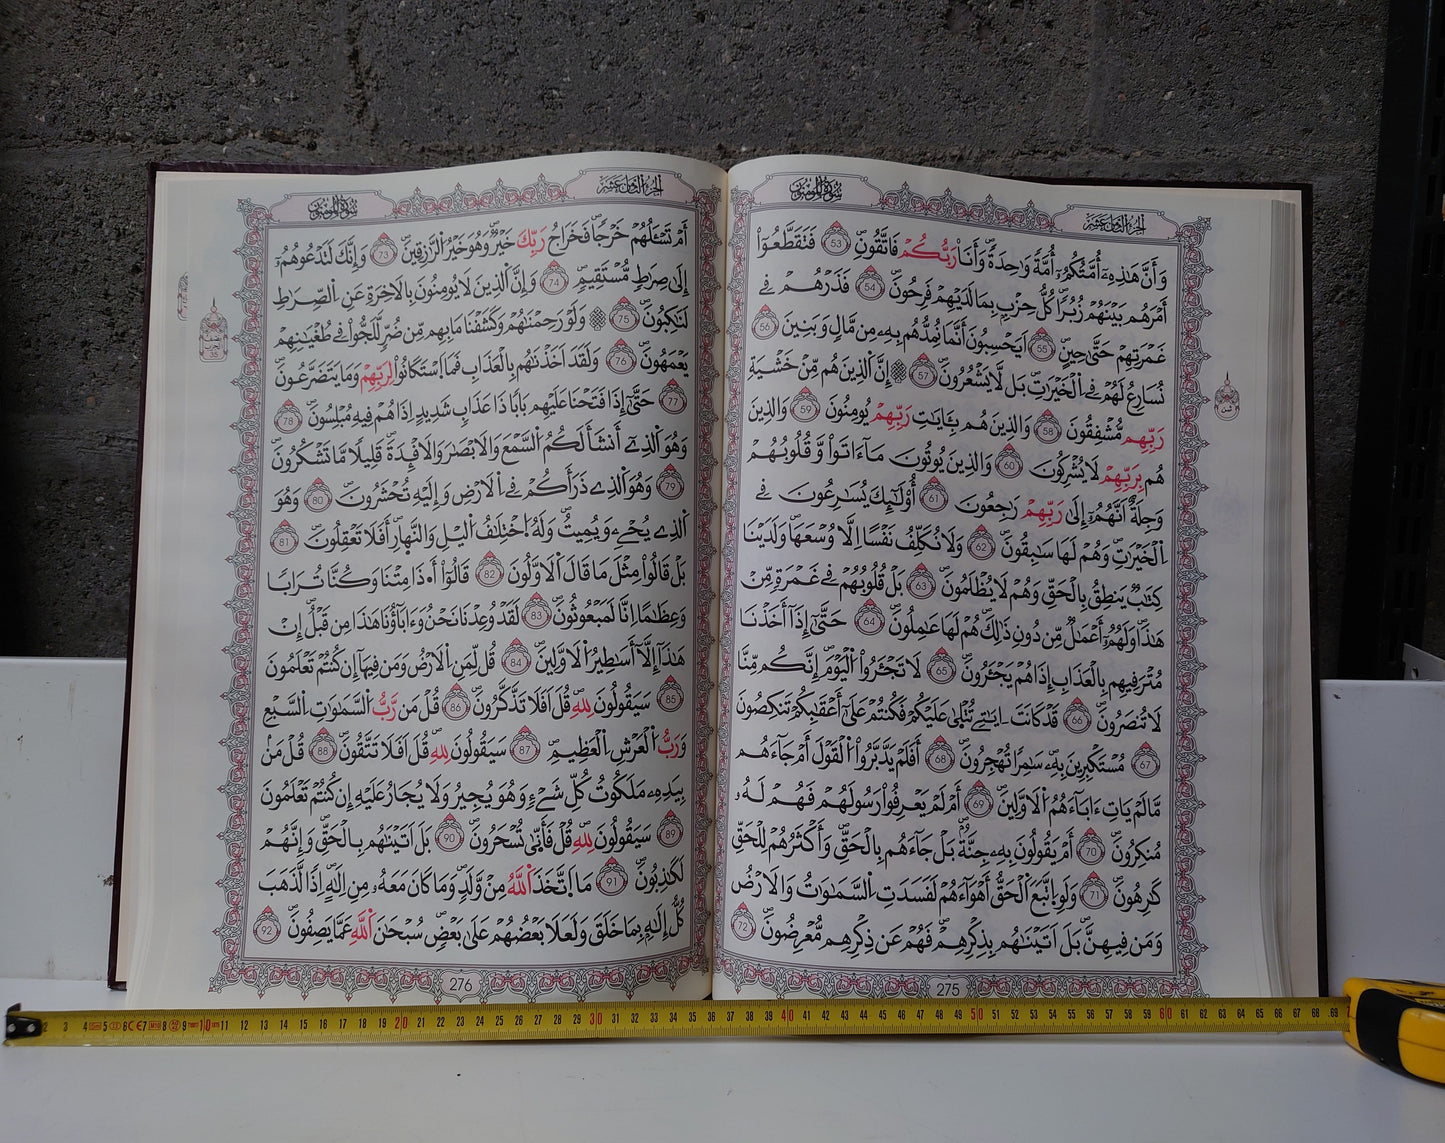 سورة المؤمنون
الجزء الثامن عشر
وَأَنَّ هَٰذِهِۦٓ أُمَّتُكُمُۥٓ أُمَّةٗ وَٰحِدَةٗ وَأَنَا۠ رَبُّكُمْ فَاتَّقُونِ 53 فَتَقَطَّعُوٓاْ
أَمْرَهُم بَيْنَهُمْ زُبُراٗ كُلُّ حِزْبِۢ بِمَا لَدَيْهِمْ فَرِحُونَ 54 فَذَرْهُمْ فِے
غَمْرَتِهِمْ حَتَّىٰ حِينٍ 55 اَيَحْسِبُونَ أَنَّمَا نُمِدُّهُم بِهِۦ مِن مَّالٖ وَبَنِينَ 56
نُسَارِعُ لَهُمْ فِے اِ۬لْخَيْرَٰتِ بَل لَّا يَشْعُرُونَ 57 إِنَّ اَ۬لذِينَ هُم مِّنْ خَشْيَةِ
رَبِّهِم مُّشْفِقُونَ 58 وَالذِينَ هُم بِـَٔايَٰتِ رَبِّهِمْ يُومِنُونَ 59 وَالذِينَ
هُم بِرَبِّهِمْ لَا يُشْرِكُونَ 60 وَالذِينَ يُوتُونَ مَآ ءَاتَواْ وَّقُلُوبُهُمْ
وَجِلَةٌ اَنَّهُمُۥٓ إِلَىٰ رَبِّهِمْ رَٰجِعُونَ 61 أُوْلَٰٓئِكَ يُسَٰرِعُونَ فِے
اِ۬لْخَيْرَٰتِ وَهُمْ لَهَا سَٰبِقُونَ 62 وَلَا نُكَلِّفُ نَفْساً اِلَّا وُسْعَهَا وَلَدَيْنَا
كِتَٰبٞ يَنطِقُ بِالْحَقِّ وَهُمْ لَا يُظْلَمُونَ 63 بَلْ قُلُوبُهُمْ فِے غَمْرَةٖ مِّنْ
هَٰذَا وَلَهُمُۥٓ أَعْمَٰلٞ مِّن دُونِ ذَٰلِكَ هُمْ لَهَا عَٰمِلُونَ 64 حَتَّىٰٓ إِذَآ أَخَذْنَا
مُتْرَفِيهِم بِالْعَذَابِ إِذَا هُمْ يَجْـَٔرُونَ 65 لَا تَجْـَٔرُواْ اُ۬لْيَوْمَ إِنَّكُم مِّنَّا
لَا تُنصَرُونَ 66 قَدْ كَانَتَ اٰيَٰتِے تُتْلَىٰ عَلَيْكُمْ فَكُنتُمْ عَلَىٰٓ أَعْقَٰبِكُمْ تَنكِصُونَ
67 مُسْتَكْبِرِينَ بِهِۦ سَٰمِراٗ تُهْجِرُونَ 68 أَفَلَمْ يَدَّبَّرُواْ اُ۬لْقَوْلَ أَمْ جَآءَهُم
مَّا لَمْ يَاتِ ءَابَآءَهُمُ اُ۬لَاوَّلِينَ 69 أَمْ لَمْ يَعْرِفُواْ رَسُولَهُمْ فَهُمْ لَهُۥ
مُنكِرُونَ 70 أَمْ يَقُولُونَ بِهِۦ جِنَّةُۢ بَلْ جَآءَهُم بِالْحَقِّ وَأَكْثَرُهُمْ لِلْحَقِّ
كَٰرِهُونَ 71 وَلَوِ اِ۪تَّبَعَ اَ۬لْحَقُّ أَهْوَآءَهُمْ لَفَسَدَتِ اِ۬لسَّمَٰوَٰتُ وَالَارْضُ
وَمَن فِيهِنَّ بَلَ اَتَيْنَٰهُم بِذِكْرِهِمْ فَهُمْ عَن ذِكْرِهِم مُّعْرِضُونَ 72
275
ثمن
الجزء الثامن عشر
سورة المؤمنون
أَمْ تَسْـَٔلُهُمْ خَرْجاٗ فَخَرَاجُ رَبِّكَ خَيْرٞ وَهُوَ خَيْرُ اُ۬لرَّٰزِقِينَ 73 وَإِنَّكَ لَتَدْعُوهُمُۥٓ
إِلَىٰ صِرَٰطٖ مُّسْتَقِيمٖ 74 وَإِنَّ اَ۬لذِينَ لَا يُومِنُونَ بِالَاخِرَةِ عَنِ اِ۬لصِّرَٰطِ
لَنَٰكِبُونَ 75 وَلَوْ رَحِمْنَٰهُمْ وَكَشَفْنَا مَا بِهِم مِّن ضُرّٖ لَّلَجُّواْ فِے طُغْيَٰنِهِمْ
يَعْمَهُونَ 76 وَلَقَدَ اَخَذْنَٰهُم بِالْعَذَابِ فَمَا اَ۪سْتَكَانُواْ لِرَبِّهِمْ وَمَا يَتَضَرَّعُونَ
77 حَتَّىٰٓ إِذَا فَتَحْنَا عَلَيْهِم بَاباٗ ذَا عَذَابٖ شَدِيدٍ اِذَا هُمْ فِيهِ مُبْلِسُونَ 78
وَهُوَ اَ۬لذِےٓ أَنشَأَ لَكُمُ اُ۬لسَّمْعَ وَالَابْصَٰرَ وَالَافْـِٕدَةَ قَلِيلاٗ مَّا تَشْكُرُونَ
79 وَهُوَ اَ۬لذِے ذَرَأَكُمْ فِے اِ۬لَارْضِ وَإِلَيْهِ تُحْشَرُونَ 80 وَهُوَ
اَ۬لذِے يُحْيِۦ وَيُمِيتُ وَلَهُ اُ۪خْتِلَٰفُ اُ۬ليْلِ وَالنَّهٰارِ أَفَلَا تَعْقِلُونَ 81
بَلْ قَالُواْ مِثْلَ مَا قَالَ اَ۬لَاوَّلُونَ 82 قَالُوٓاْ أَ.ذَا مِتْنَا وَكُنَّا تُرَاباٗ
وَعِظَٰماً اِنَّا لَمَبْعُوثُونَ 83 لَقَدْ وُعِدْنَا نَحْنُ وَءَابَآؤُنَا هَٰذَا مِن قَبْلُ إِنْ
هَٰذَآ إِلَّآ أَسَٰطِيرُ اُ۬لَاوَّلِينَ 84 قُل لِّمَنِ اِ۬لَارْضُ وَمَن فِيهَآ إِن كُنتُمْ تَعْلَمُونَ
85 سَيَقُولُونَ لِلهِ قُلَ اَفَلَا تَذَّكَّرُونَ 86 قُلْ مَن رَّبُّ اُ۬لسَّمَٰوَٰتِ اِ۬لسَّبْعِ
وَرَبُّ اُ۬لْعَرْشِ اِ۬لْعَظِيمِ 87 سَيَقُولُونَ لِلهِ قُلَ اَفَلَا تَتَّقُونَ 88 قُلْ مَنۢ
بِيَدِهِۦ مَلَكُوتُ كُلِّ شَےْءٖ وَهُوَ يُجِيرُ وَلَا يُجَارُ عَلَيْهِ إِن كُنتُمْ تَعْلَمُونَ
89 سَيَقُولُونَ لِلهِ قُلْ فَأَنّ۪ىٰ تُسْحَرُونَ 90 بَلَ اَتَيْنَٰهُم بِالْحَقِّ وَإِنَّهُمْ
لَكَٰذِبُونَ 91 مَا اَ۪تَّخَذَ اَ۬للَّهُ مِنْ وَّلَدٖ وَمَا كَانَ مَعَهُۥ مِنِ اِلَٰهٍ اِذاٗ لَّذَهَبَ
كُلُّ إِلَٰهِۢ بِمَا خَلَقَ وَلَعَلَا بَعْضُهُمْ عَلَىٰ بَعْضٖ سُبْحَٰنَ اَ۬للَّهِ عَمَّا يَصِفُونَ 92
276
نصف
الحزب
35
2 3 4 5 6 7 8 9 10 11 12 13 14 15 16 17 18 19 20 21 22 23 24 25 26 27 28 29 30 31 32 33 34 35 36 37 38 39 40 41 42 43 44 45 46 47 48 49 50 51 52 53 54 55 56 57 58 59 60 61 62 63 64 65 66 67 68 69